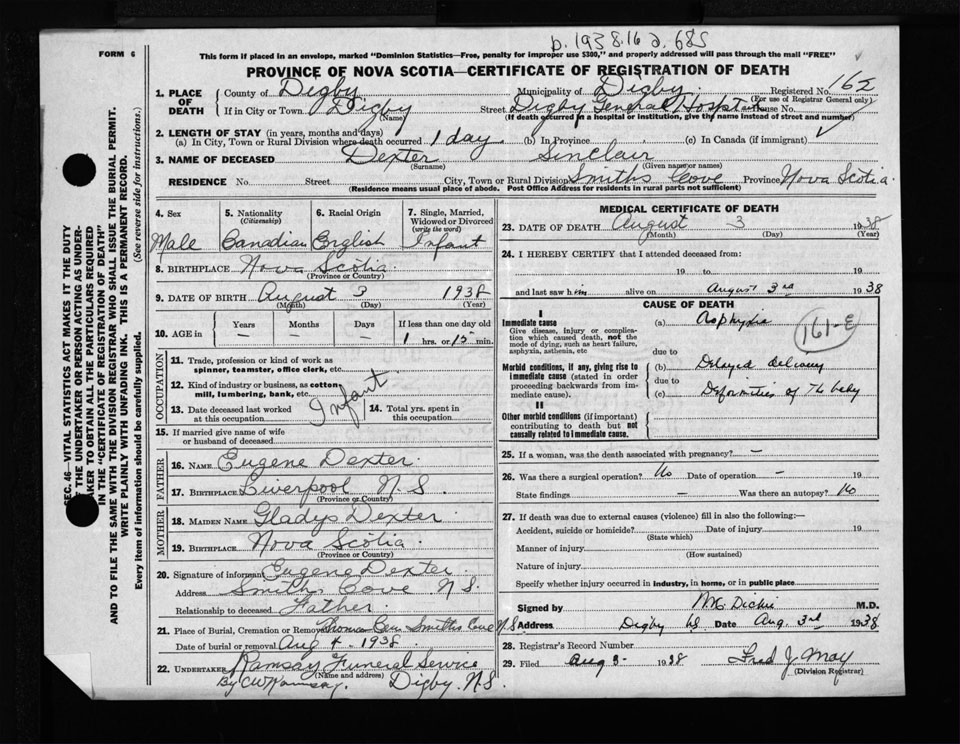 b. 1938.16 d. 685
FORM 6
This form if placed in an envelope, marked "Dominion Statistics—Free, penalty for improper use $300," and properly addressed will pass through the mail "FREE"
PROVINCE OF NOVA SCOTIA—CERTIFICATE OF REGISTRATION OF DEATH
SEC. 46 VITAL STATISTICS ACT MAKES IT THE DUTY
OF THE UNDERTAKER OR PERSON ACTING AS UNDER-
TAKER TO OBTAIN ALL THE PARTICULARS REQUIRED
IN THE "CERTIFICATE OF REGISTRATION OF DEATH"
AND TO FILE THE SAME WITH THE DIVISION REGISTRAR WHO SHALL ISSUE THE BURIAL PERMIT.
WRITE PLAINLY WITH UNFADING INK. THIS IS A PERMANENT RECORD.
Every item of information should be carefully supplied. (See reverse side for instructions.)
1. PLACE OF DEATH
County of Digby Municipality of Digby Registered No. 162
(For use of Registrar General only)
If in City or Town Digby Street Digby General Hospital House No.
(Name) (If death occurred in a hospital or institution, give the name instead of street and number)
2. LENGTH OF STAY (in years, months and days)
(a) In City, Town or Rural Division where death occurred 1 day (b) In Province (c) In Canada (if immigrant)
3. NAME OF DECEASED Dexter Sinclair
(Surname) (Given name or names)
RESIDENCE No. Street City, Town or Rural Division Smiths Cove Province Nova Scotia
(Residence means usual place of abode. Post Office Address for residents in rural parts not sufficient)
4. Sex Male
5. Nationality (Citizenship) Canadian
6. Racial Origin English
7. Single, Married, Widowed or Divorced (write the word) Infant
8. BIRTHPLACE Nova Scotia
(Province or Country)
9. DATE OF BIRTH August 3 1938
(Month) (Day) (Year)
10. AGE in Years Months Days If less than one day old
— — — 1 hrs. or 15 min.
OCCUPATION
11. Trade, profession or kind of work as
spinner, teamster, office clerk, etc.
12. Kind of industry or business, as cotton
mill, lumbering, bank, etc.
Infant
13. Date deceased last worked at this occupation
14. Total yrs. spent in this occupation
15. If married give name of wife
or husband of deceased
FATHER
16. NAME Eugene Dexter
17. BIRTHPLACE Liverpool N.S.
(Province or Country)
MOTHER
18. MAIDEN NAME Gladys Dexter
19. BIRTHPLACE Nova Scotia
(Province or Country)
20. Signature of informant Eugene Dexter
Address Smiths Cove N S
Relationship to deceased Father
21. Place of Burial, Cremation or Removal Thomas Cem Smiths Cove N S
Date of burial or removal Aug 4 - 1938
22. UNDERTAKER Ramsay Funeral Service
(Name and address)
By CW Ramsay. Digby. N.S.
MEDICAL CERTIFICATE OF DEATH
23. DATE OF DEATH August 3 1938
(Month) (Day) (Year)
24. I HEREBY CERTIFY that I attended deceased from:
19 to 19
and last saw him alive on August 3rd 1938
CAUSE OF DEATH
I
Immediate cause (a) Asphyxia
Give disease, injury or complica-
tion which caused death, not the
mode of dying, such as heart failure,
asphyxia, asthenia, etc
161-E
due to
Morbid conditions, if any, giving rise to
immediate cause (stated in order
proceeding backwards from im-
mediate cause).
(b) Delayed delivery
due to
(c) Deformities of the baby
II
Other morbid conditions (if important)
contributing to death but not
causally related to immediate cause.
25. If a woman, was the death associated with pregnancy? —
26. Was there a surgical operation? No Date of operation — 19
State findings — Was there an autopsy? No
27. If death was due to external causes (violence) fill in also the following:—
Accident, suicide or homicide? Date of injury 19
(State which)
Manner of injury
(How sustained)
Nature of injury
Specify whether injury occurred in industry, in home, or in public place
Signed by Dickie M.D.
Address Digby NS Date Aug. 3rd 1938
28. Registrar's Record Number
29. Filed Aug 3- 1938 Fred J. May
(Division Registrar)